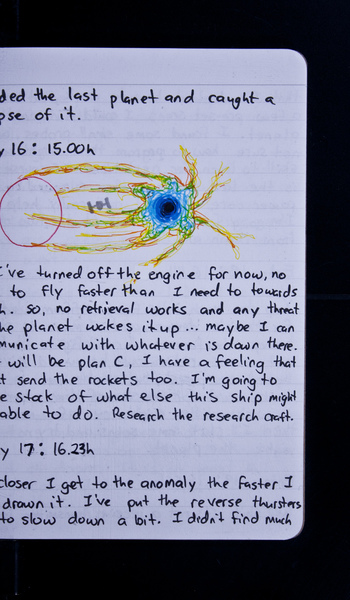 ded the last planet and caught a
pse of it.
y 16: 15.00h
I've turned off the engine for now, no
to fly faster than I need to towards
h. so, no retrieval works and any threat
he planet wakes it up... maybe I can
municate with whatever is down there.
will be plan C, I have a feeling that
t send the rockets too. I'm going to
e stock of what else this ship might
able to do. Research the research craft.
y 17: 16.23h
closer I get to the anomaly the faster I
drawn it. I've put the reverse thursters
to slow down a bit. I didn't find much